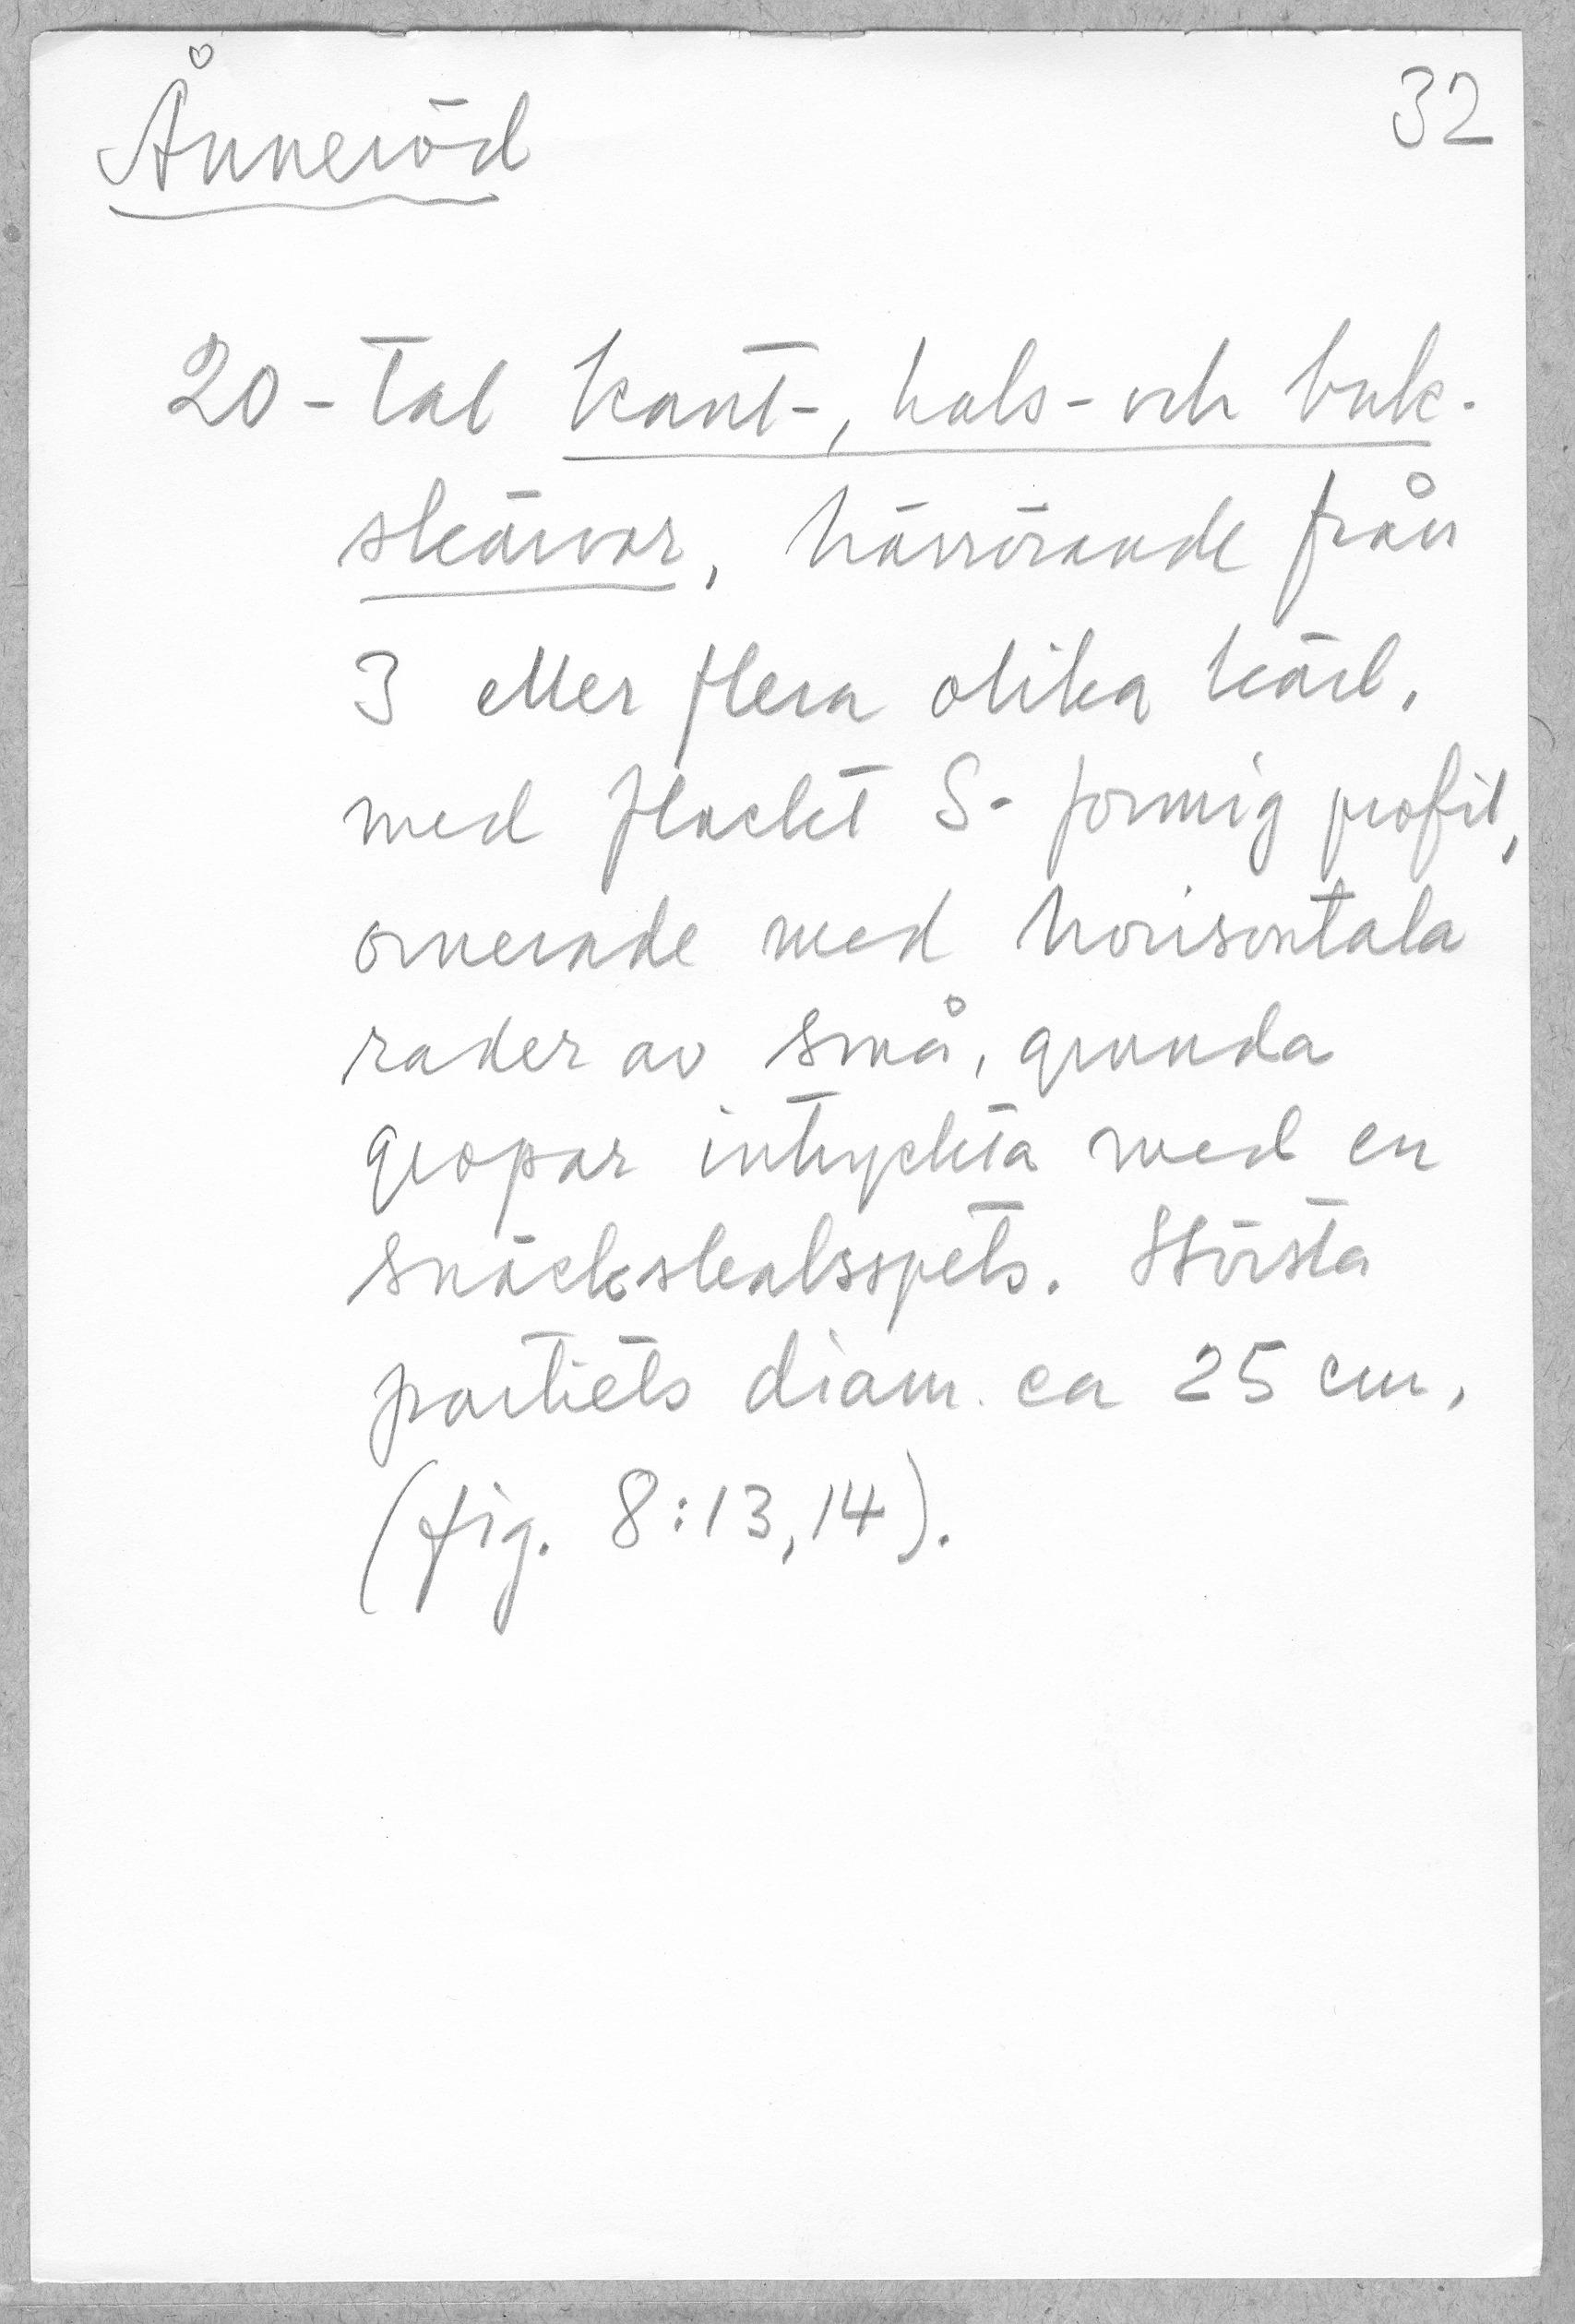 Ånneröd
32
20-tal kant-, hals- och buk-
skärvor, härrörande från
3 eller flera olika kärl,
med flackt S-formig profil,
ornerade med horisontala
rader av små, grunda
gropar intryckta med en
snäckskalsspets. Största
partiets diam. ca 25 cm,
(fig. 8:13,14).